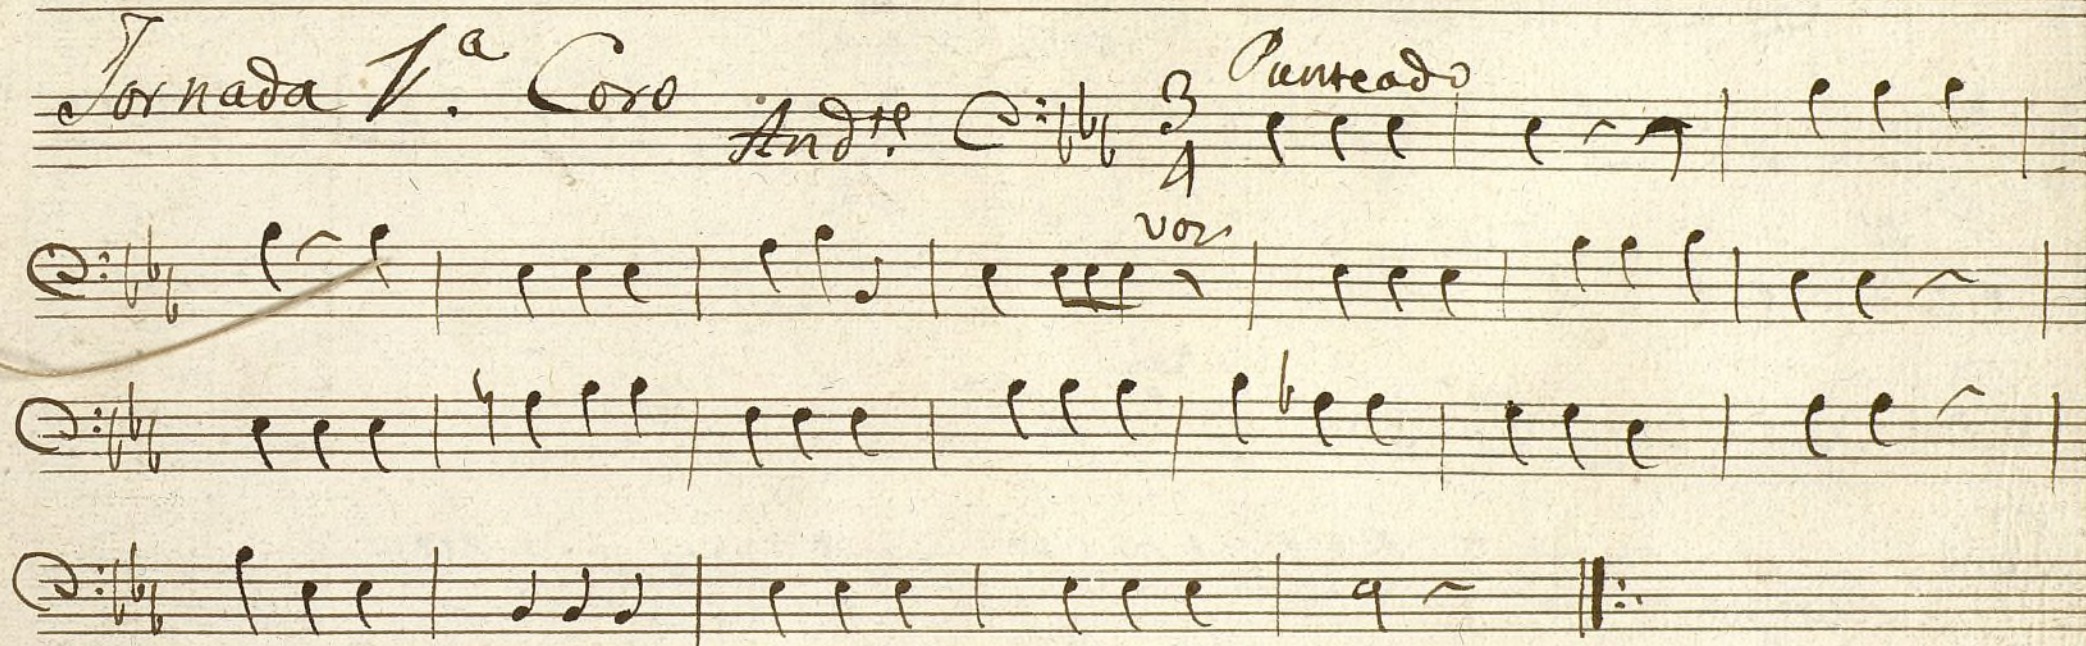 Jornada 1.ª Coro And.te 3/4 Punteado
voz